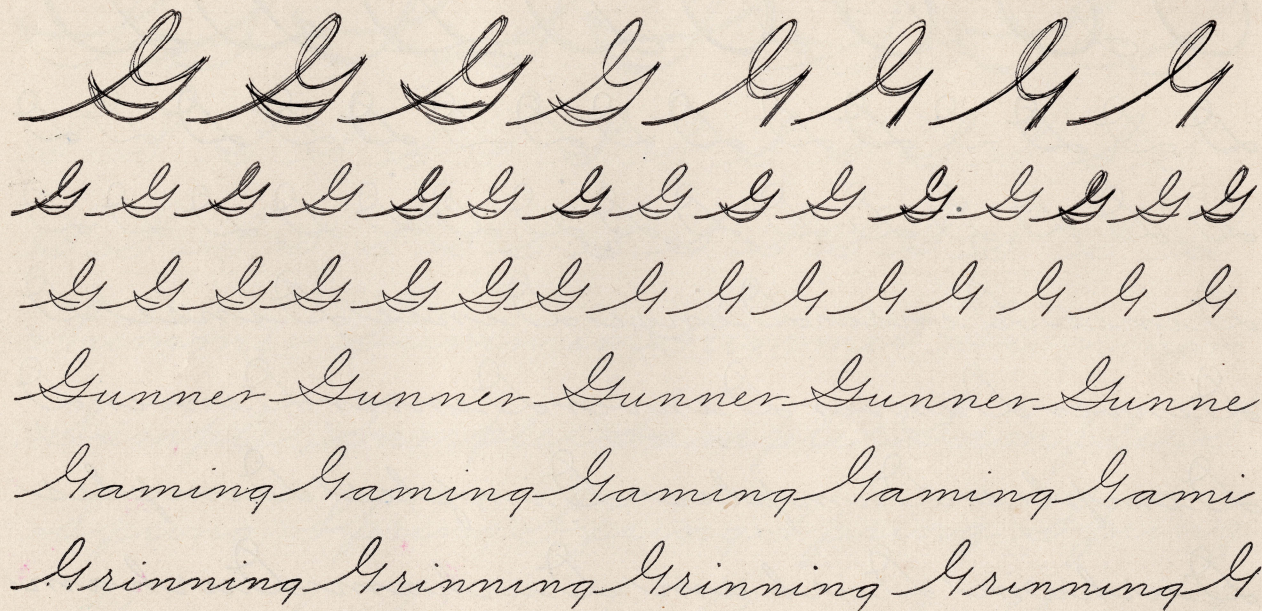 G G G G G G G G
G G G G G G G G G G G G G G G
G G G G G G G G G G G G G G G
Gunner Gunner Gunner Gunner Gunne
Gaming Gaming Gaming Gaming Gami
Grinning Grinning Grinning Grinning G